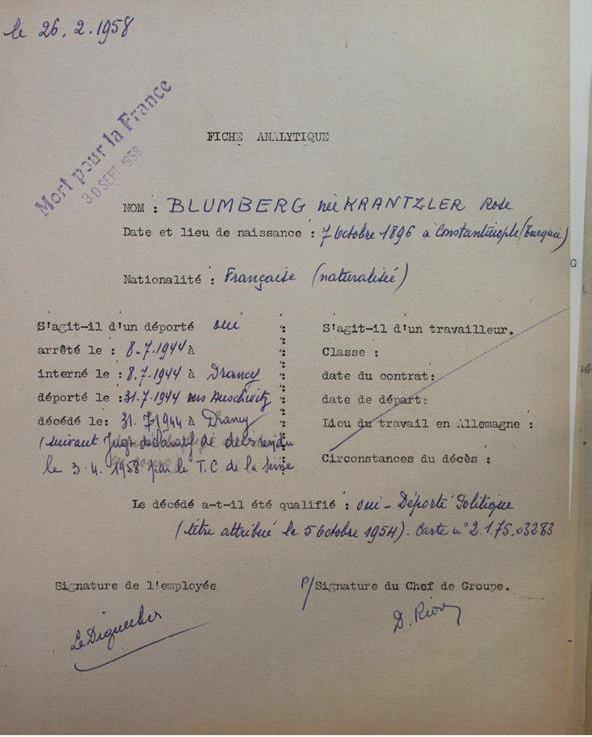 le 26.2.1958
Mort pour la France
30 SEPT 1958
FICHE ANALYTIQUE
NOM : BLUMBERG née KRANTZLER Rose
Date et lieu de naissance : 7 octobre 1896 à Constantinople (Turquie)
Nationalité : Française (naturalisée)
S'agit-il d'un déporté oui
arrêté le : 8.7.1944 à
interné le : 8.7.1944 à Drancy
déporté le : 31.7.1944 vers Auschwitz
décédé le: 31.7.1944 à Drancy
(suivant Jugt déclaratif de décès rendu
le 3.4.1958 par le T.C de la Seine
S'agit-il d'un travailleur.
Classe :
date du contrat:
date de départ:
Lieu du travail en Allemagne :
Circonstances du décès :
Le décédé a-t-il été qualifié : oui - Déporté Politique
(titre attribué le 5 octobre 1954). Carte n° 2.1.75.03283
Signature de l'employée
P/Signature du Chef de Groupe.